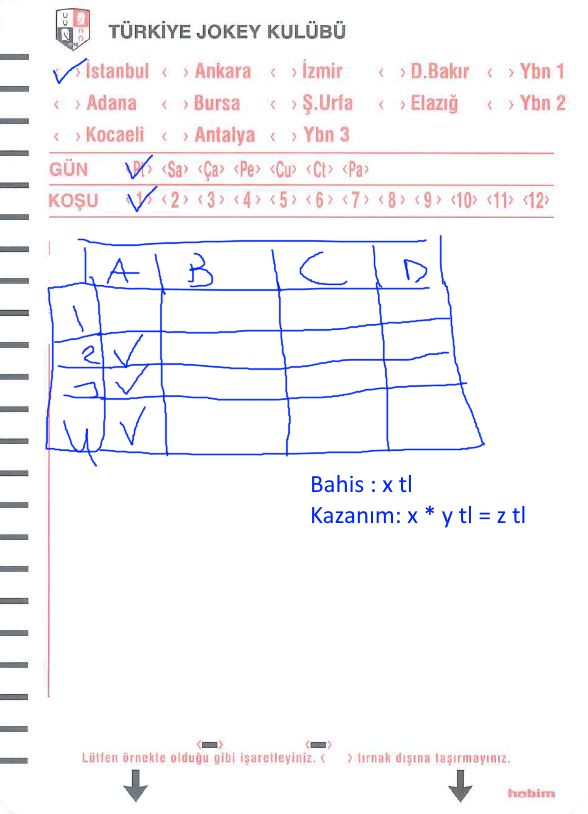 TÜRKİYE JOKEY KULÜBÜ
‹ › İstanbul ‹ › Ankara ‹ › İzmir ‹ › D.Bakır ‹ › Ybn 1
‹ › Adana ‹ › Bursa ‹ › Ş.Urfa ‹ › Elazığ ‹ › Ybn 2
‹ › Kocaeli ‹ › Antalya ‹ › Ybn 3
GÜN ‹Pt› ‹Sa› ‹Ça› ‹Pe› ‹Cu› ‹Ct› ‹Pa›
KOŞU ‹1› ‹2› ‹3› ‹4› ‹5› ‹6› ‹7› ‹8› ‹9› ‹10› ‹11› ‹12›
A B C D
1
2
3
4
Bahis : x tl
Kazanım: x * y tl = z tl
Lütfen örnekte olduğu gibi işaretleyiniz. ‹ › tırnak dışına taşırmayınız.
hobim